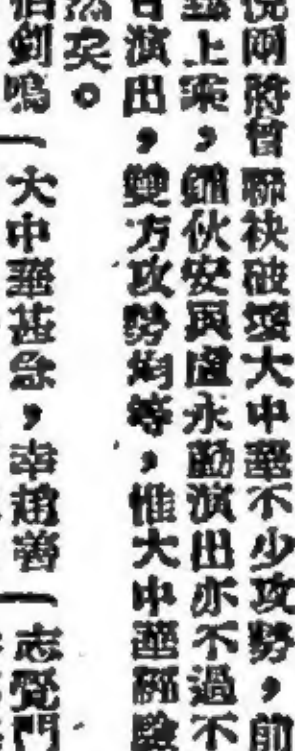 倪兩將曾聯袂破壞大中華不少攻勢，前
上乘，鋒伙安與盧永勳演出亦不過不
演出，雙方攻勢均等，惟大中華經驗
矣。
到鳴一大中華甚急，幸趙善一志覺門